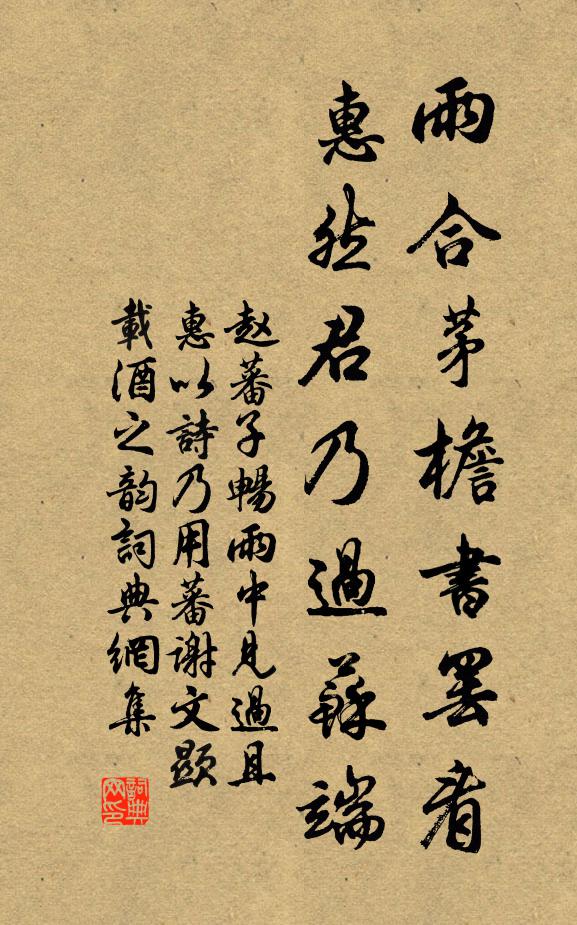 雨合茅檐書罢看
惠然君乃過蘇端
赵蕃子暢雨中見過且
惠以詩乃用蕃謝文顯
載酒之韵詞典網集
詞典网印